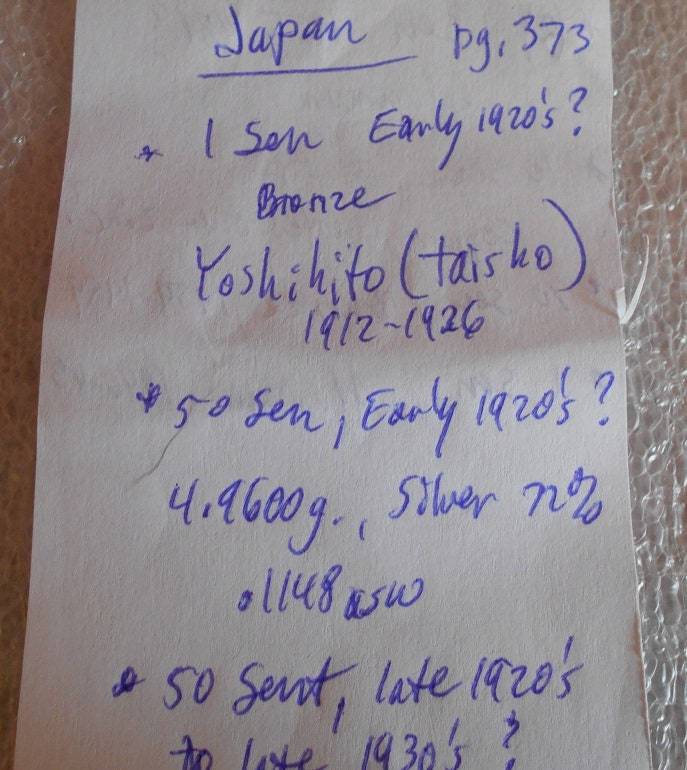 Japan pg. 373
* 1 Sen Early 1920's?
Bronze
Yoshihito (taisho)
1912-1926
* 50 Sen, Early 1920's?
4.9600g., Silver 72%
.1148 asw
* 50 Sent, late 1920's
to late 1930's?